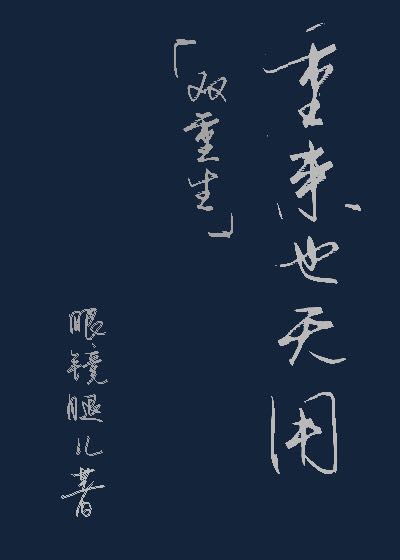 重来也无用
「双重生」
眼镜腿儿著